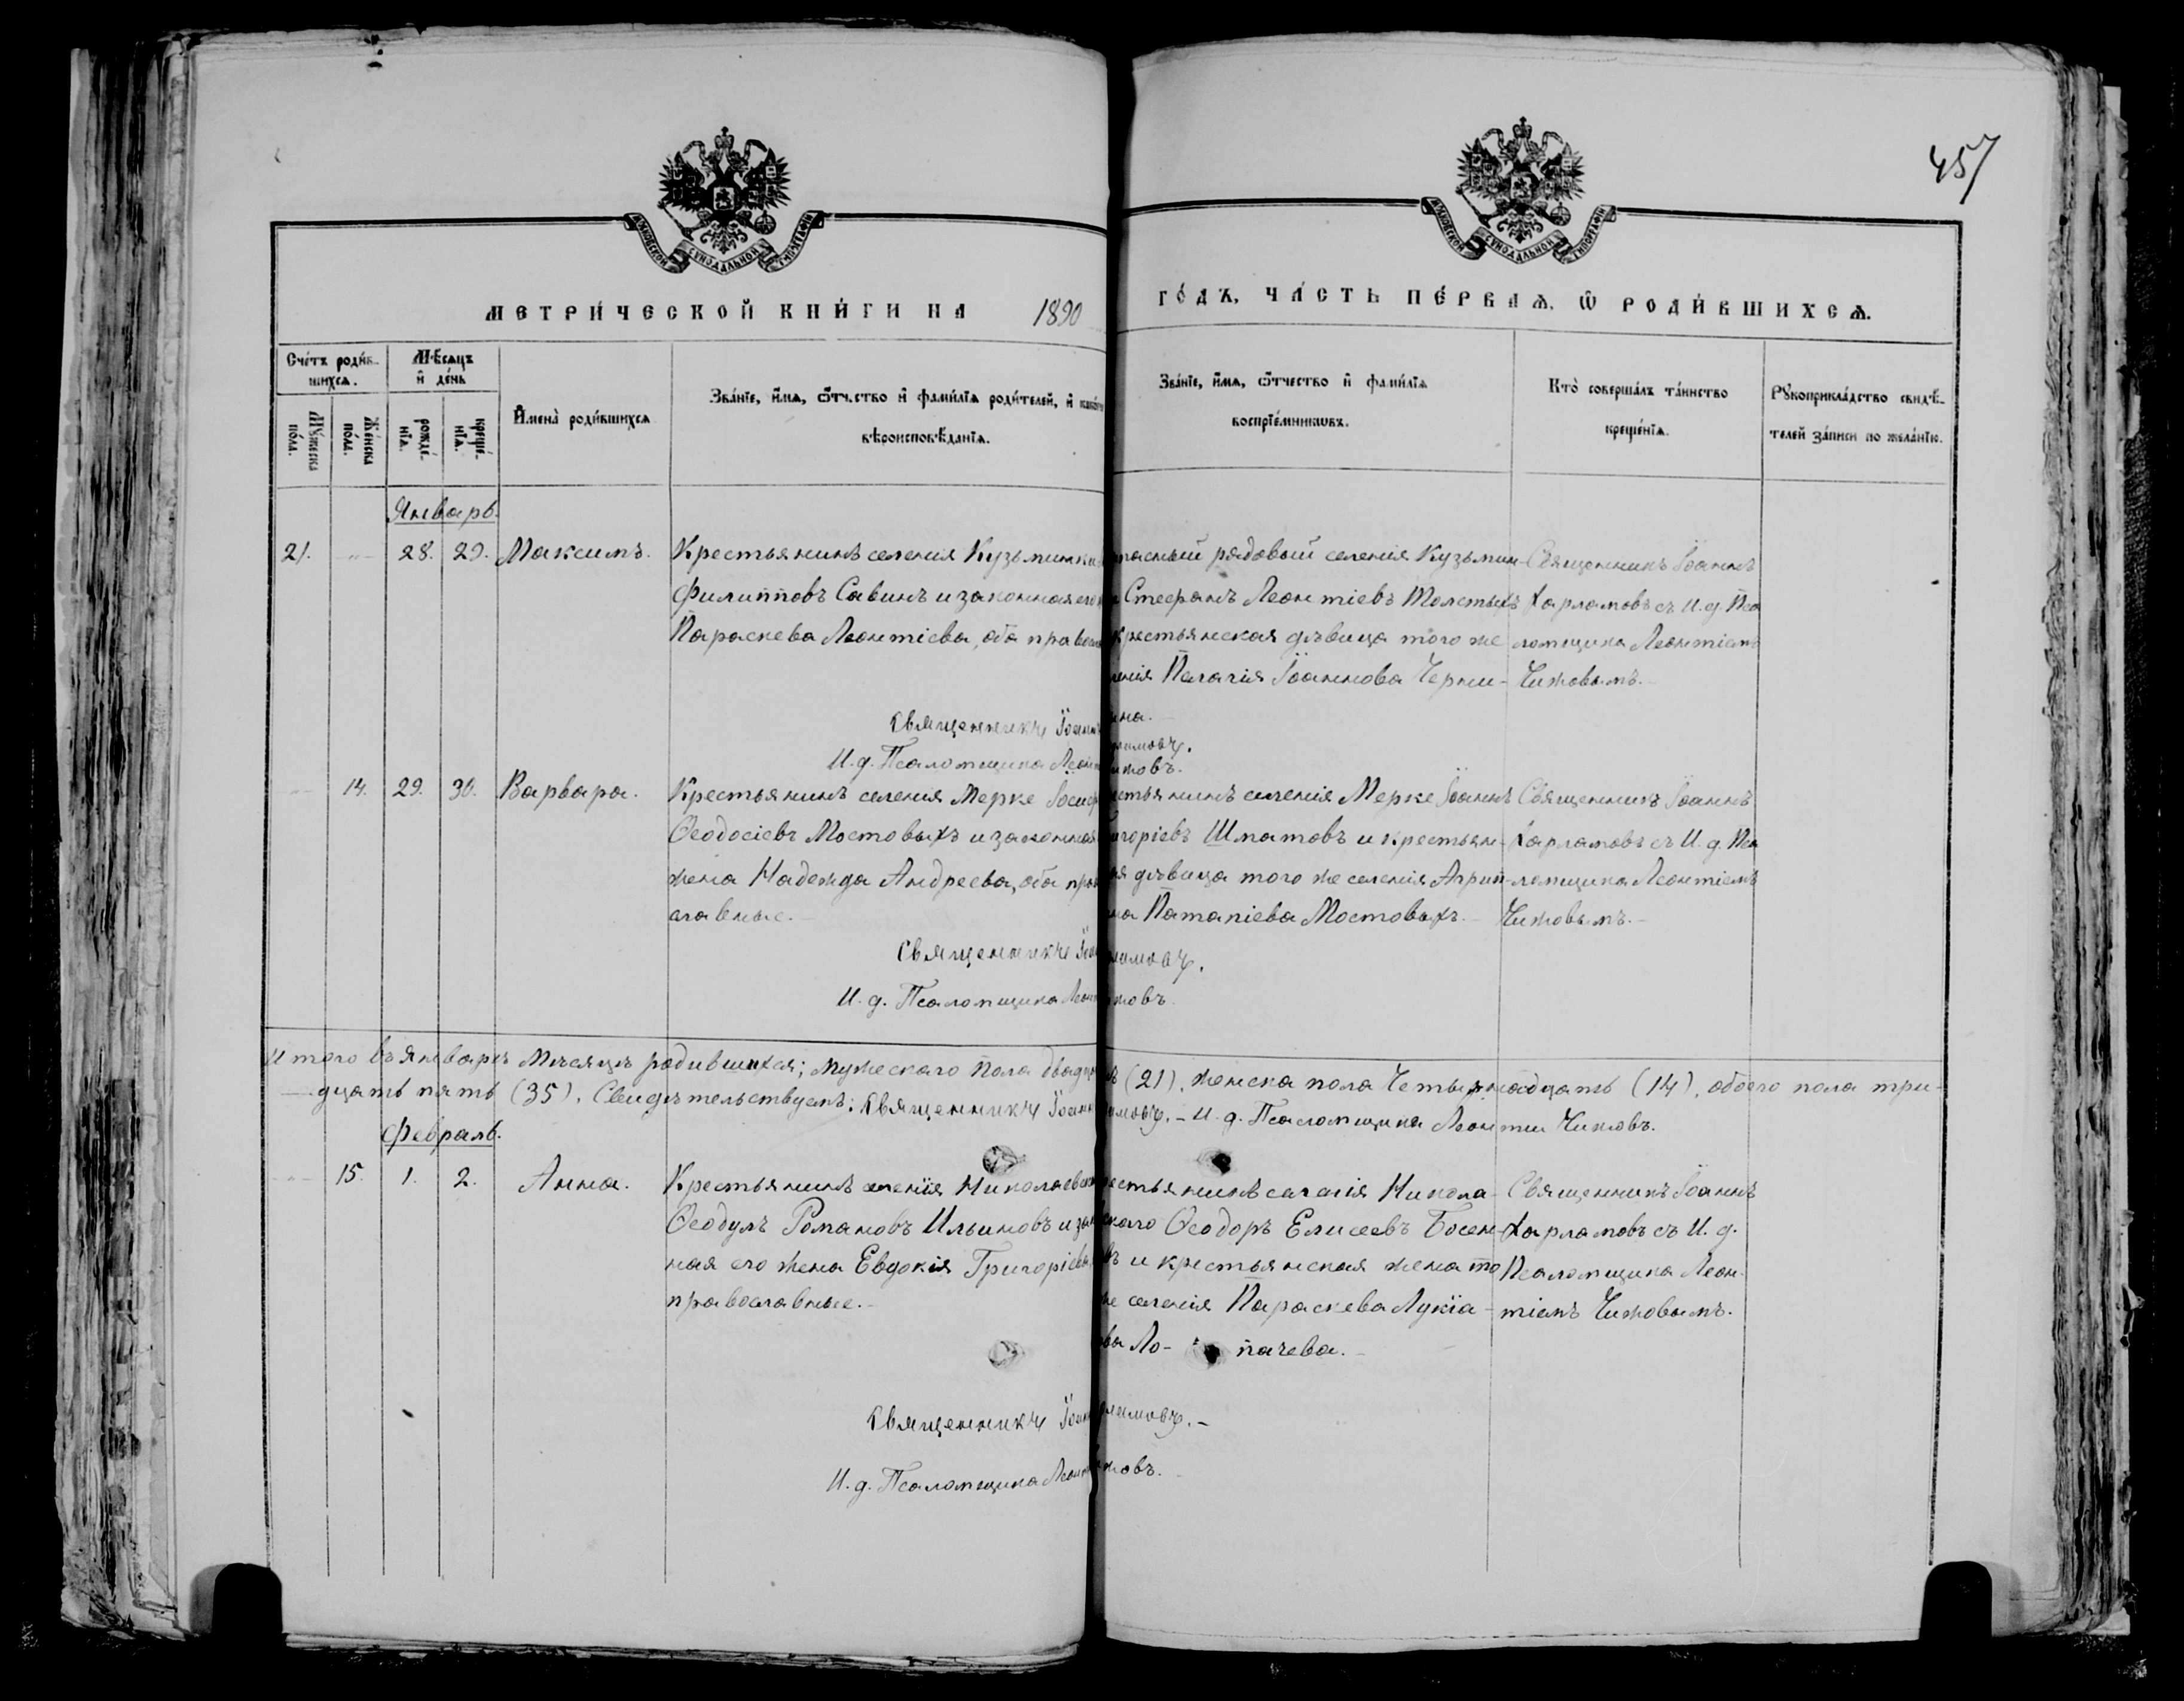 457
МОСКОВСКОЙ СѴНОДАЛЬНОЙ ТИПОГРАФІИ
МОСКОВСКОЙ СѴНОДАЛЬНОЙ ТИПОГРАФІИ
МЕТРИ́ЧЕСКОЙ КНИ́ГИ НА 1890
ГО́ДЪ, ЧА́СТЬ ПЕ́РВАѦ, Ѡ РОДИ́ВШИХСѦ.
Сче́тъ роди́в-
шихсѧ.
Мꙋ́жеска по́ла.
Же́нска по́ла.
Мѣ́сѧцъ
и҆ де́нь
рожде́-
нїѧ.
креще́-
нїѧ.
И҆мена̀ роди́вшихсѧ
Зва́нїе, и҆́мѧ, ѻ҆́тчество и҆ фами́лїѧ роди́телей, и҆
вѣроисповѣ́данїѧ.
Зва́нїе, и҆́мѧ, ѻ҆́тчество и҆ фами́лїѧ
воспрїе́мникѡвъ.
Кто̀ соверша́лъ та́инство
креще́нїѧ.
Рꙋкоприкла́дство свидѣ́-
телей за́писи по жела́нїю.
Январь.
21. 28. 29. Максимъ.
Крестьянинъ селенія Кузьминки
Филипповъ Савинъ и законная его
Параскева Леонтіева, оба право
рядовый селенія Кузьмин-
Стефанъ Леонтіевъ Толстыхъ
крестьянская дѣвица того же
Пелагія Іоаннова Черни-
на.
Священникъ Іоаннъ
Харламовъ съ И. д. Пса
ломщика Леонтіемъ
Чижовымъ.
Священникъ Іоаннъ
И. д. Псаломщика Леон
14. 29. 30. Варвара.
Крестьянинъ селенія Мерке Іосиф
Ѳеодосіевъ Мостовыхъ и законная
жена Надежда Андреева, оба пра
славные.
стьянинъ селенія Мерке Іоаннъ
игоріевъ Шматовъ и крестьян-
дѣвица того же селенія Агрип-
на Патапіева Мостовыхъ.
Священникъ Іоаннъ
Харламовъ съ И. д. Пса
ломщика Леонтіемъ
Чижовымъ.
Священникъ Іоан
И. д. Псаломщика Леон
Итого въ Январѣ Мѣсяцѣ родившихся; мужескаго пола двадца (21), женска пола четырнадцать (14), обоего пола три-
дцать пять (35). Свидѣтельствуемъ: Священникъ Іоанн И. д. Псаломщика Леонтій Чижовъ.
Февраль.
15. 1. 2. Анна.
Крестьянинъ селенія Николаевск
Ѳеодулъ Романовъ Ильиновъ и зак
ная его жена Евдокія Григоріева
православные.
рестьянинъ селенія Никола-
скаго Ѳеодоръ Елисеевъ Босен-
въ и крестьянская жена то
же селенія Параскева Лукіа-
ва Ло- пачева.
Священникъ Іоаннъ
Харламовъ съ И. д.
Псаломщика Леон-
тіемъ Чижовымъ.
Священникъ Іоан
И. д. Псаломщика Леон